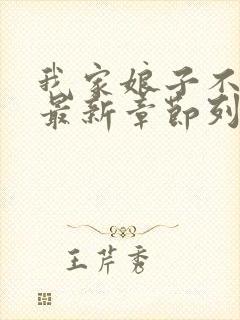 我家娘子不
最新章節列
王芹秀